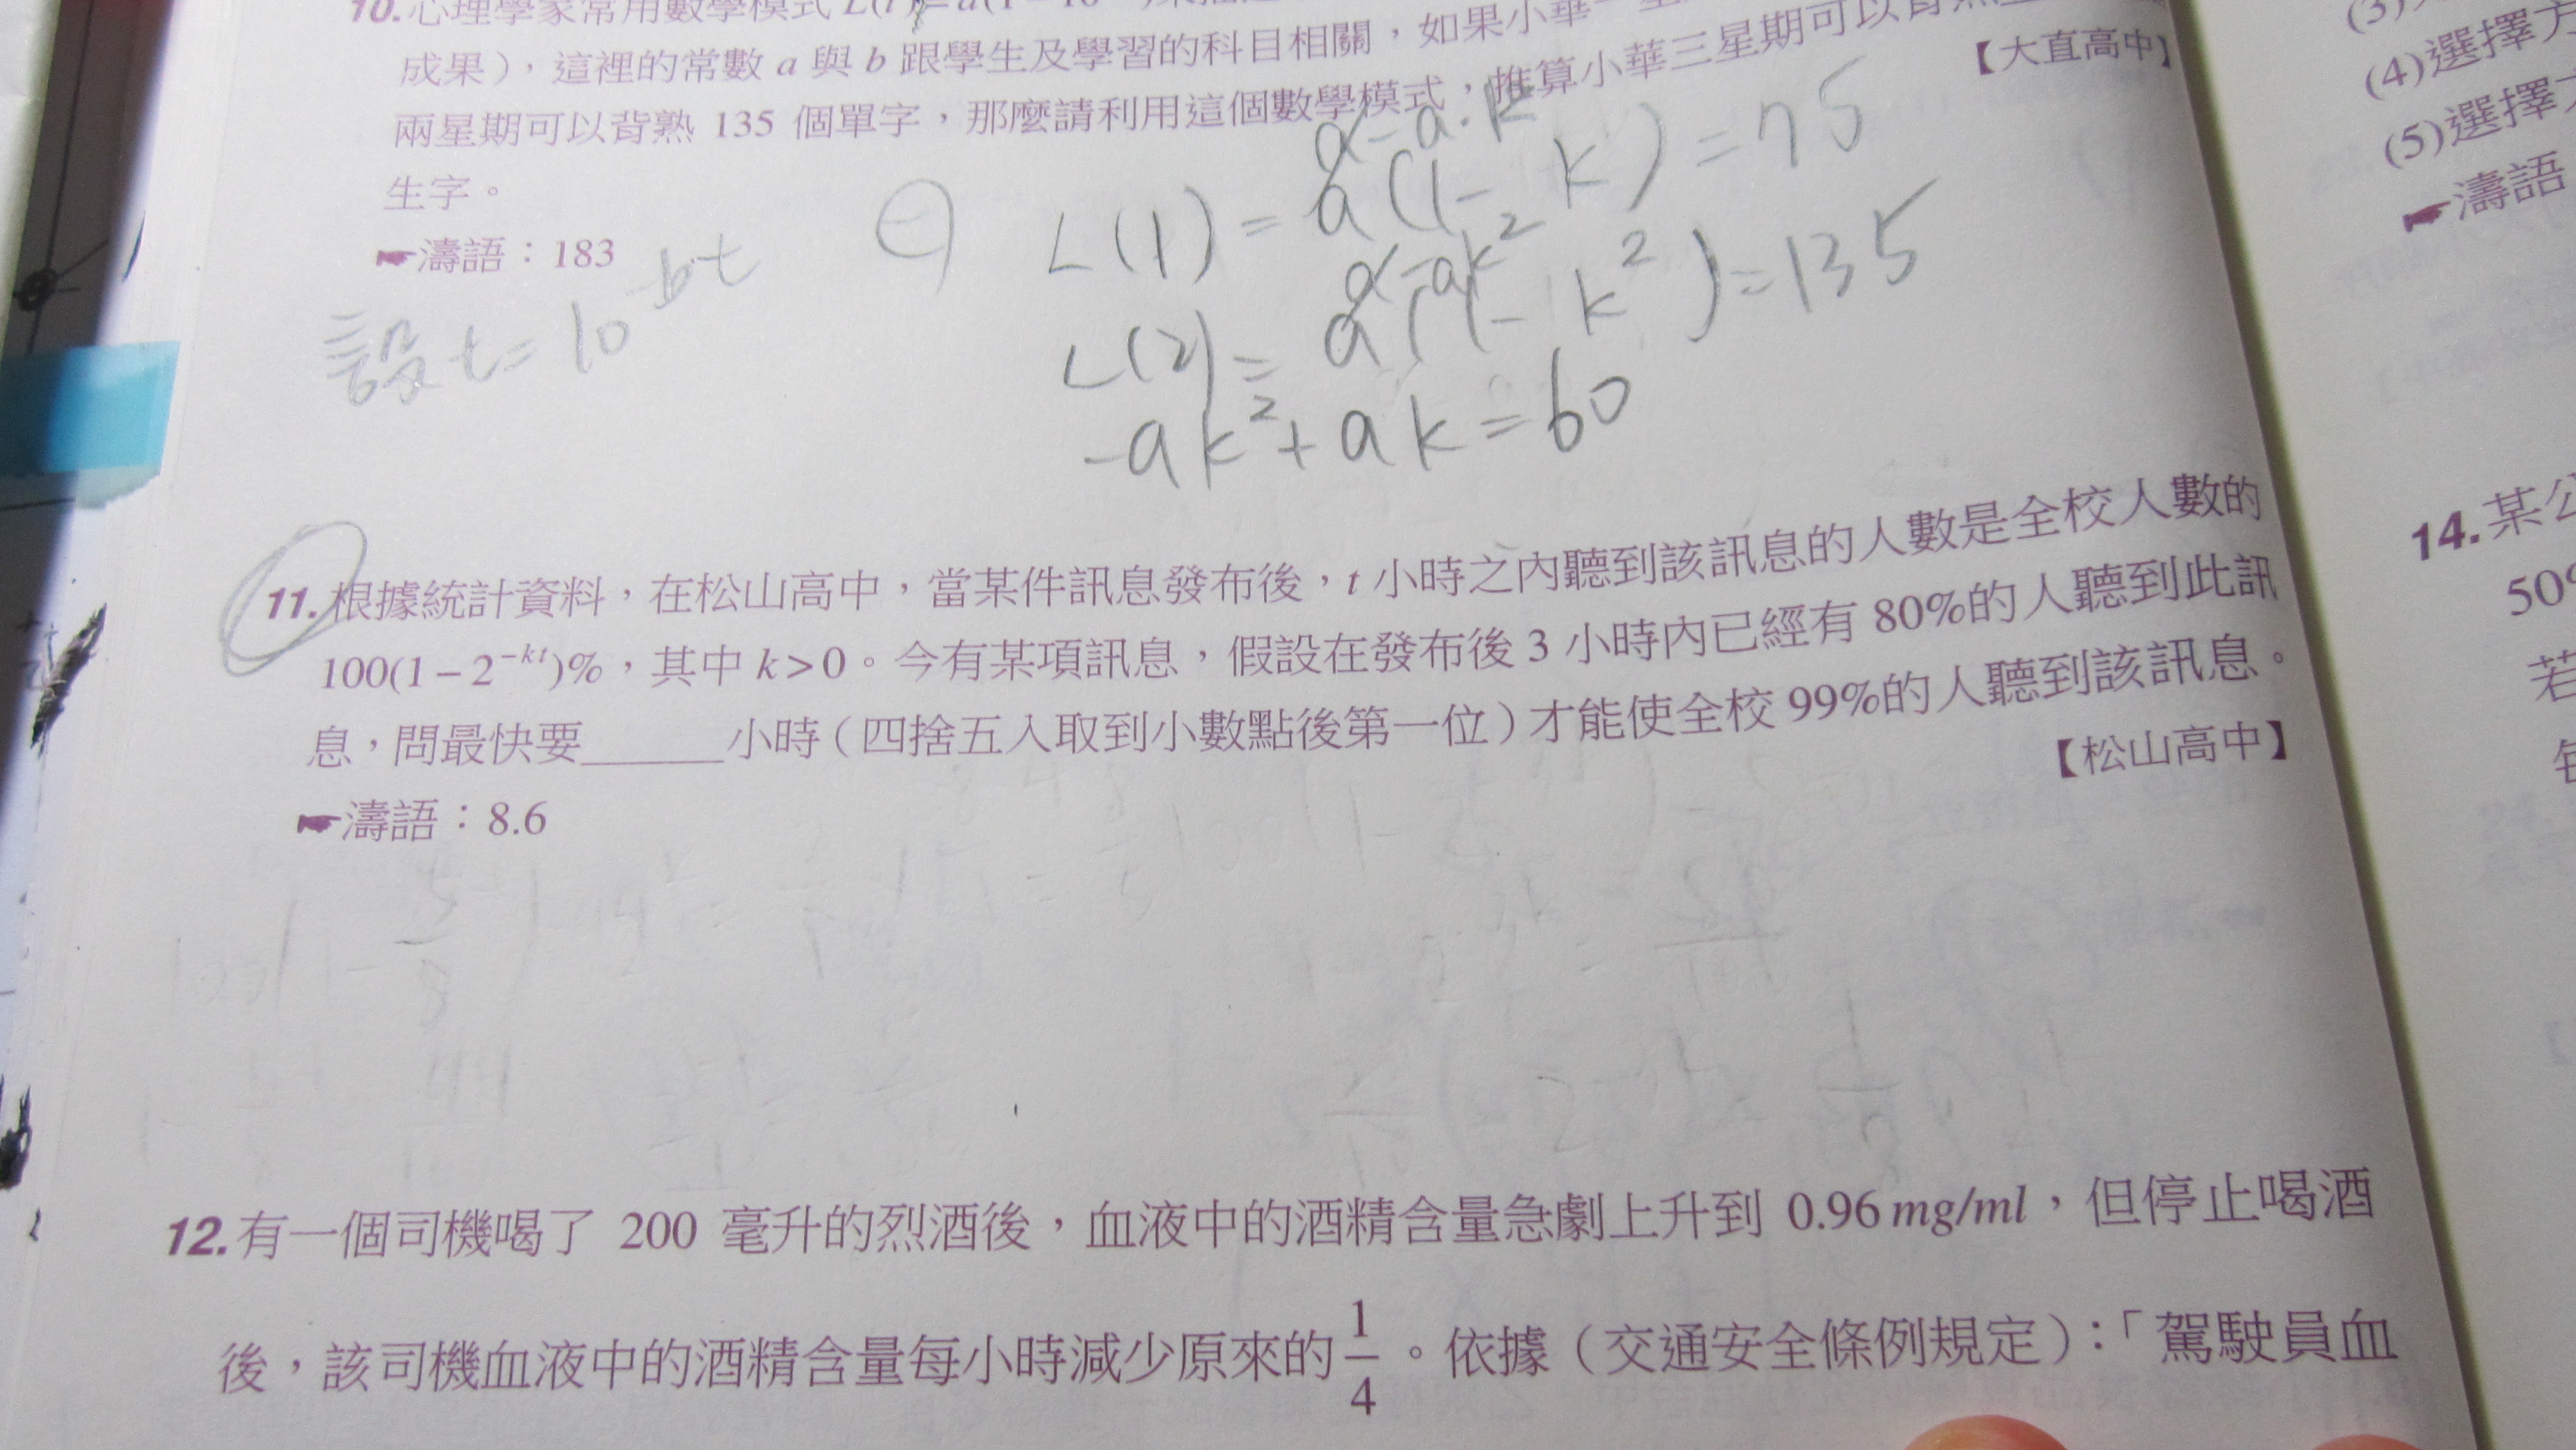 10.心理學家常用數學模式 L(t)=a(1-10
成果），這裡的常數 a 與 b 跟學生及學習的科目相關，如果小華一星
兩星期可以背熟 135 個單字，那麼請利用這個數學模式，推算小華三星期可以背熟
生字。
【大直高中】
☛濤語：183
設 t=10^-bt
⊖
a-a·k
L(1)=a(1-k)=75
a-ak²
L(2)=a(1-k²)=135
-ak²+ak=60
11.根據統計資料，在松山高中，當某件訊息發布後，t 小時之內聽到該訊息的人數是全校人數的
100(1－2^-kt)%，其中 k＞0。今有某項訊息，假設在發布後 3 小時內已經有 80%的人聽到此訊
息，問最快要______小時（四捨五入取到小數點後第一位）才能使全校 99%的人聽到該訊息。
【松山高中】
☛濤語：8.6
12.有一個司機喝了 200 毫升的烈酒後，血液中的酒精含量急劇上升到 0.96 mg/ml，但停止喝酒
後，該司機血液中的酒精含量每小時減少原來的 1/4。依據（交通安全條例規定）：「駕駛員血
(3)
(4)選擇方
(5)選擇
☛濤語
14.某公
50%
若
每